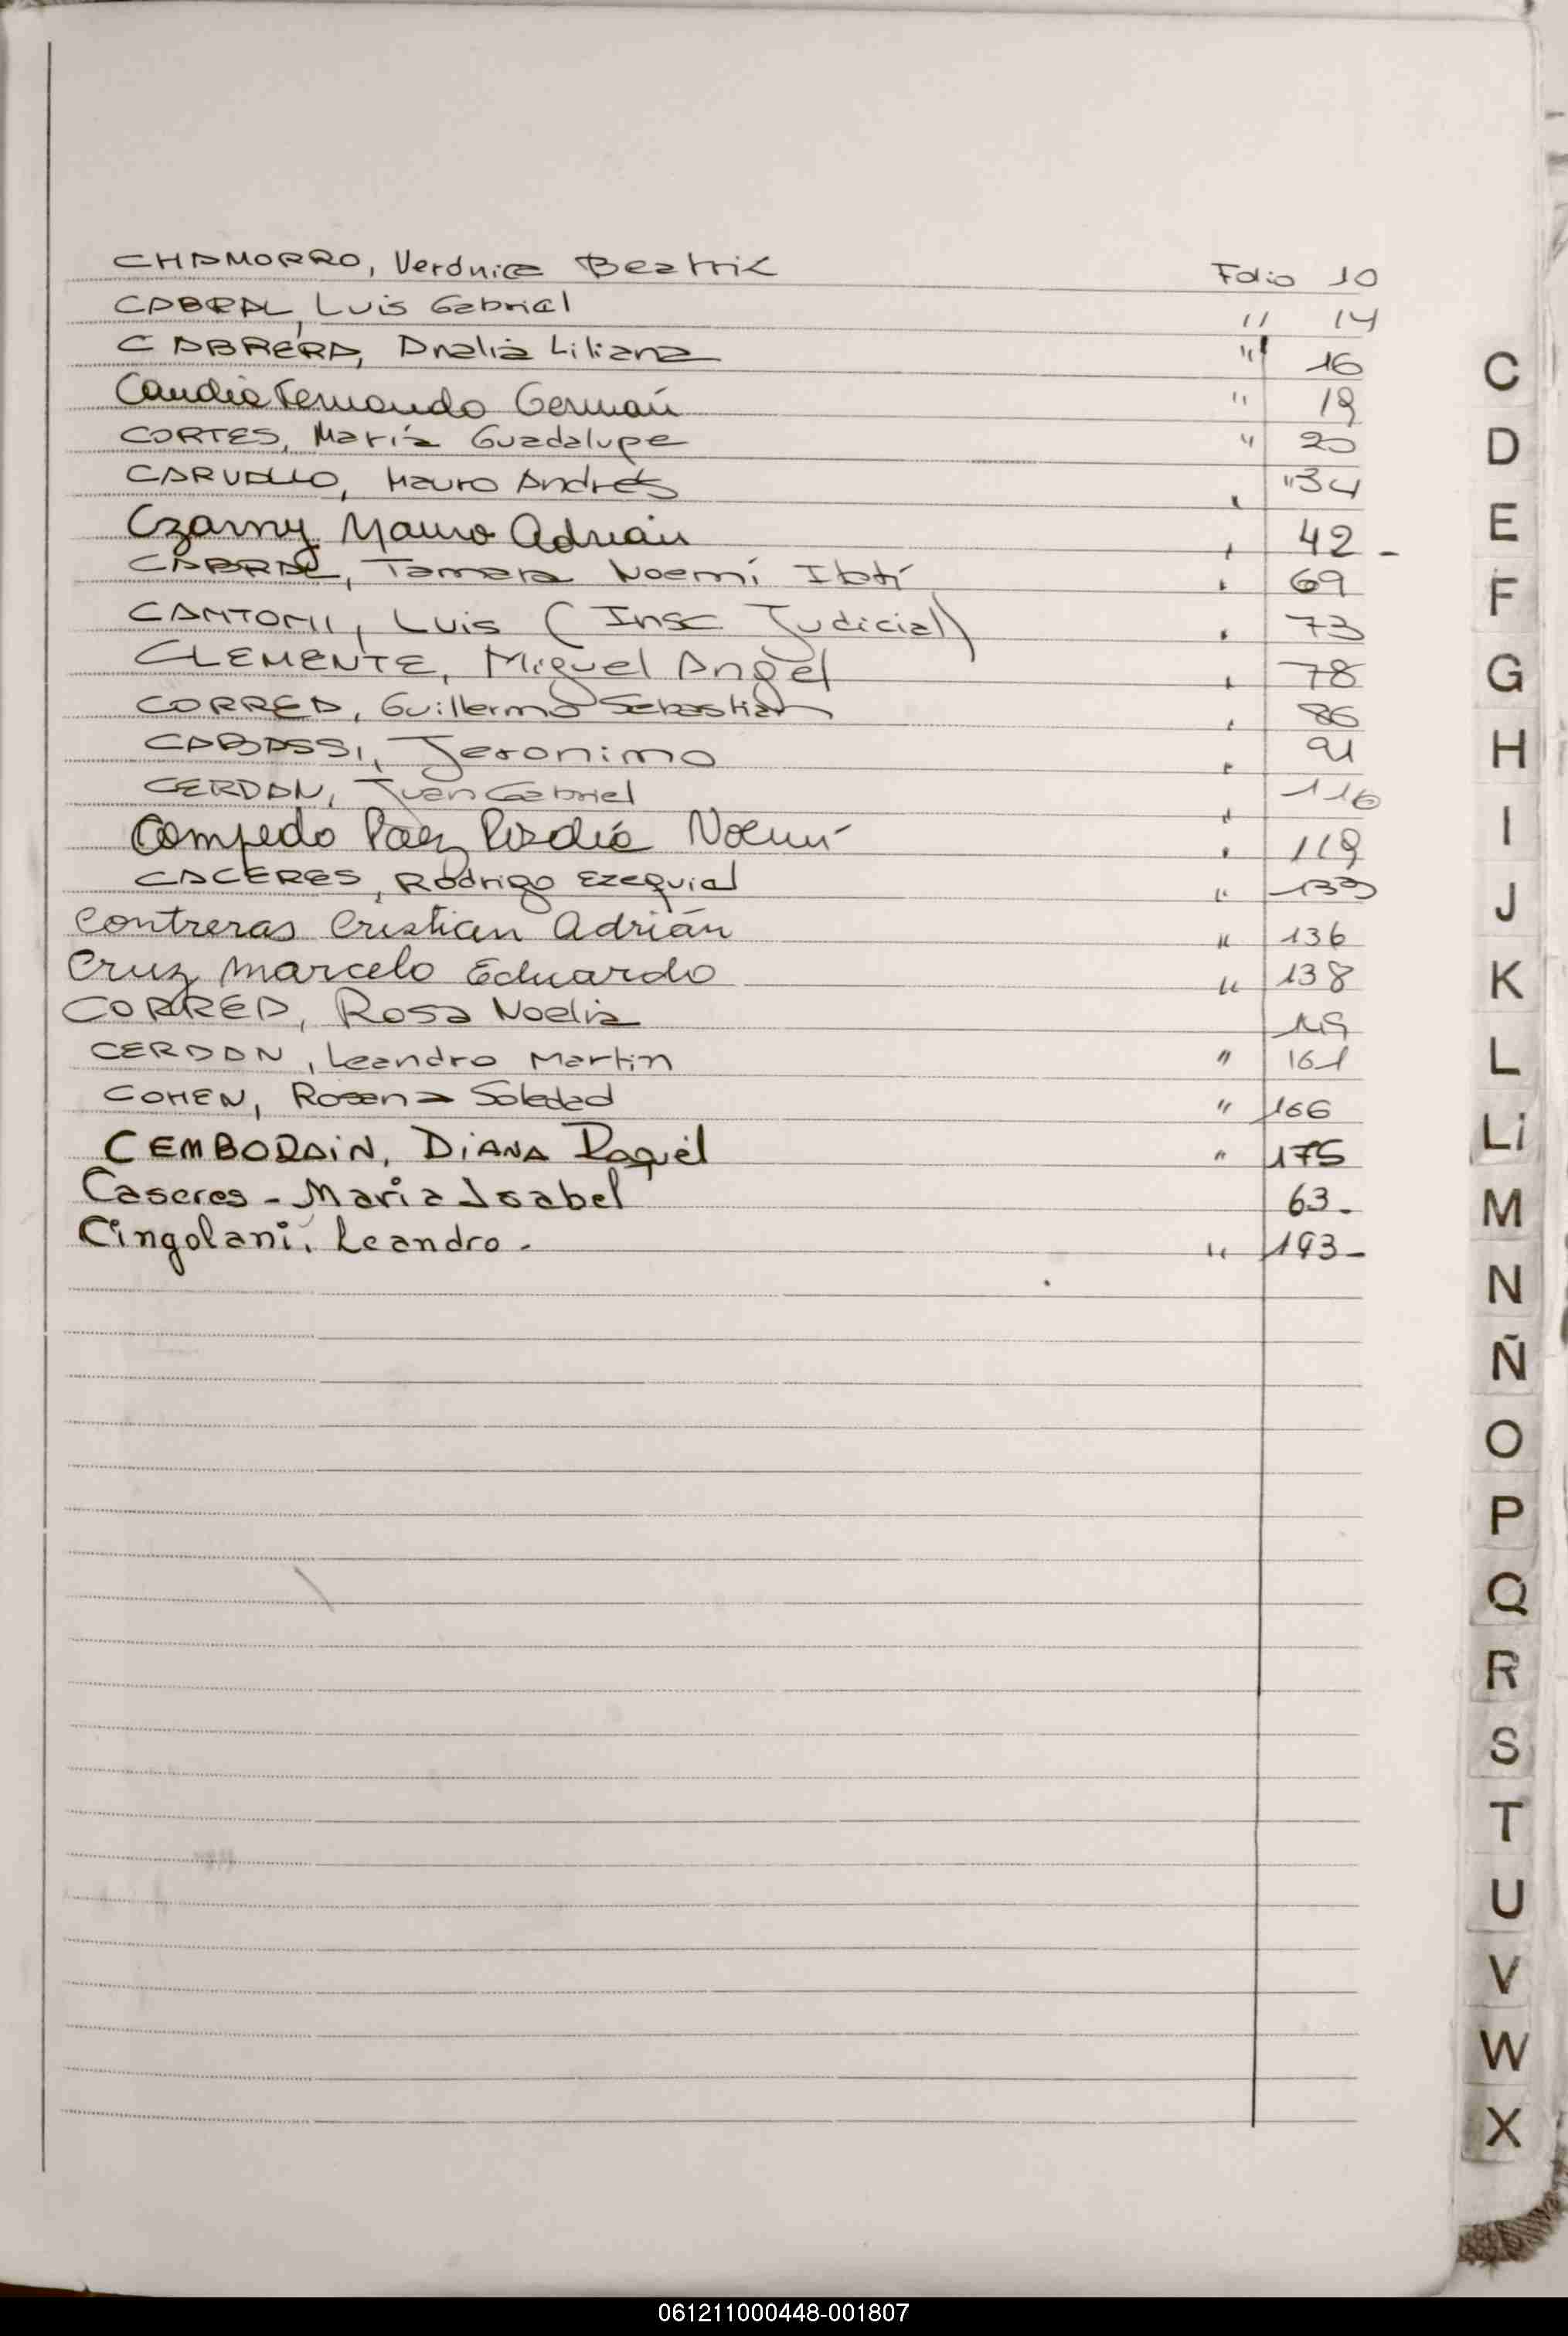 CHAMORRO, Verónica Beatriz Folio 10
CABRAL, Luis Gabriel " 14
CABRERA, Analia Liliana " 16
Candia Fernando Germán " 19
CORTES, María Guadalupe " 20
CARVALLO, Mauro Andrés " 34
Czarny Mauro Adrián " 42 -
CABRAL, Tamara Noemí Itatí " 69
CANTONI, Luis (Insc Judicial) " 73
CLEMENTE, Miguel Angel " 78
CORREA, Guillermo Sebastián " 86
CABASSI, Jeronimo " 91
CERDAN, Juan Gabriel " 116
Páez Noemí " 119
CACERES, Rodrigo Ezequiel " 133
Contreras Cristian Adrián " 136
Cruz Marcelo Eduardo " 138
CORREA, Rosa Noelia
CERDAN, Leandro Martin " 161
COHEN, Rosana Soledad " 166
CEMBORAiN, DiANA Raquel " 175
Caseres - Maria Isabel 63 -
Cingolani, Leandro - " 193 -
C
D
E
F
G
H
I
J
K
L
Ll
M
N
Ñ
O
P
Q
R
S
T
U
V
W
X
061211000448-001807